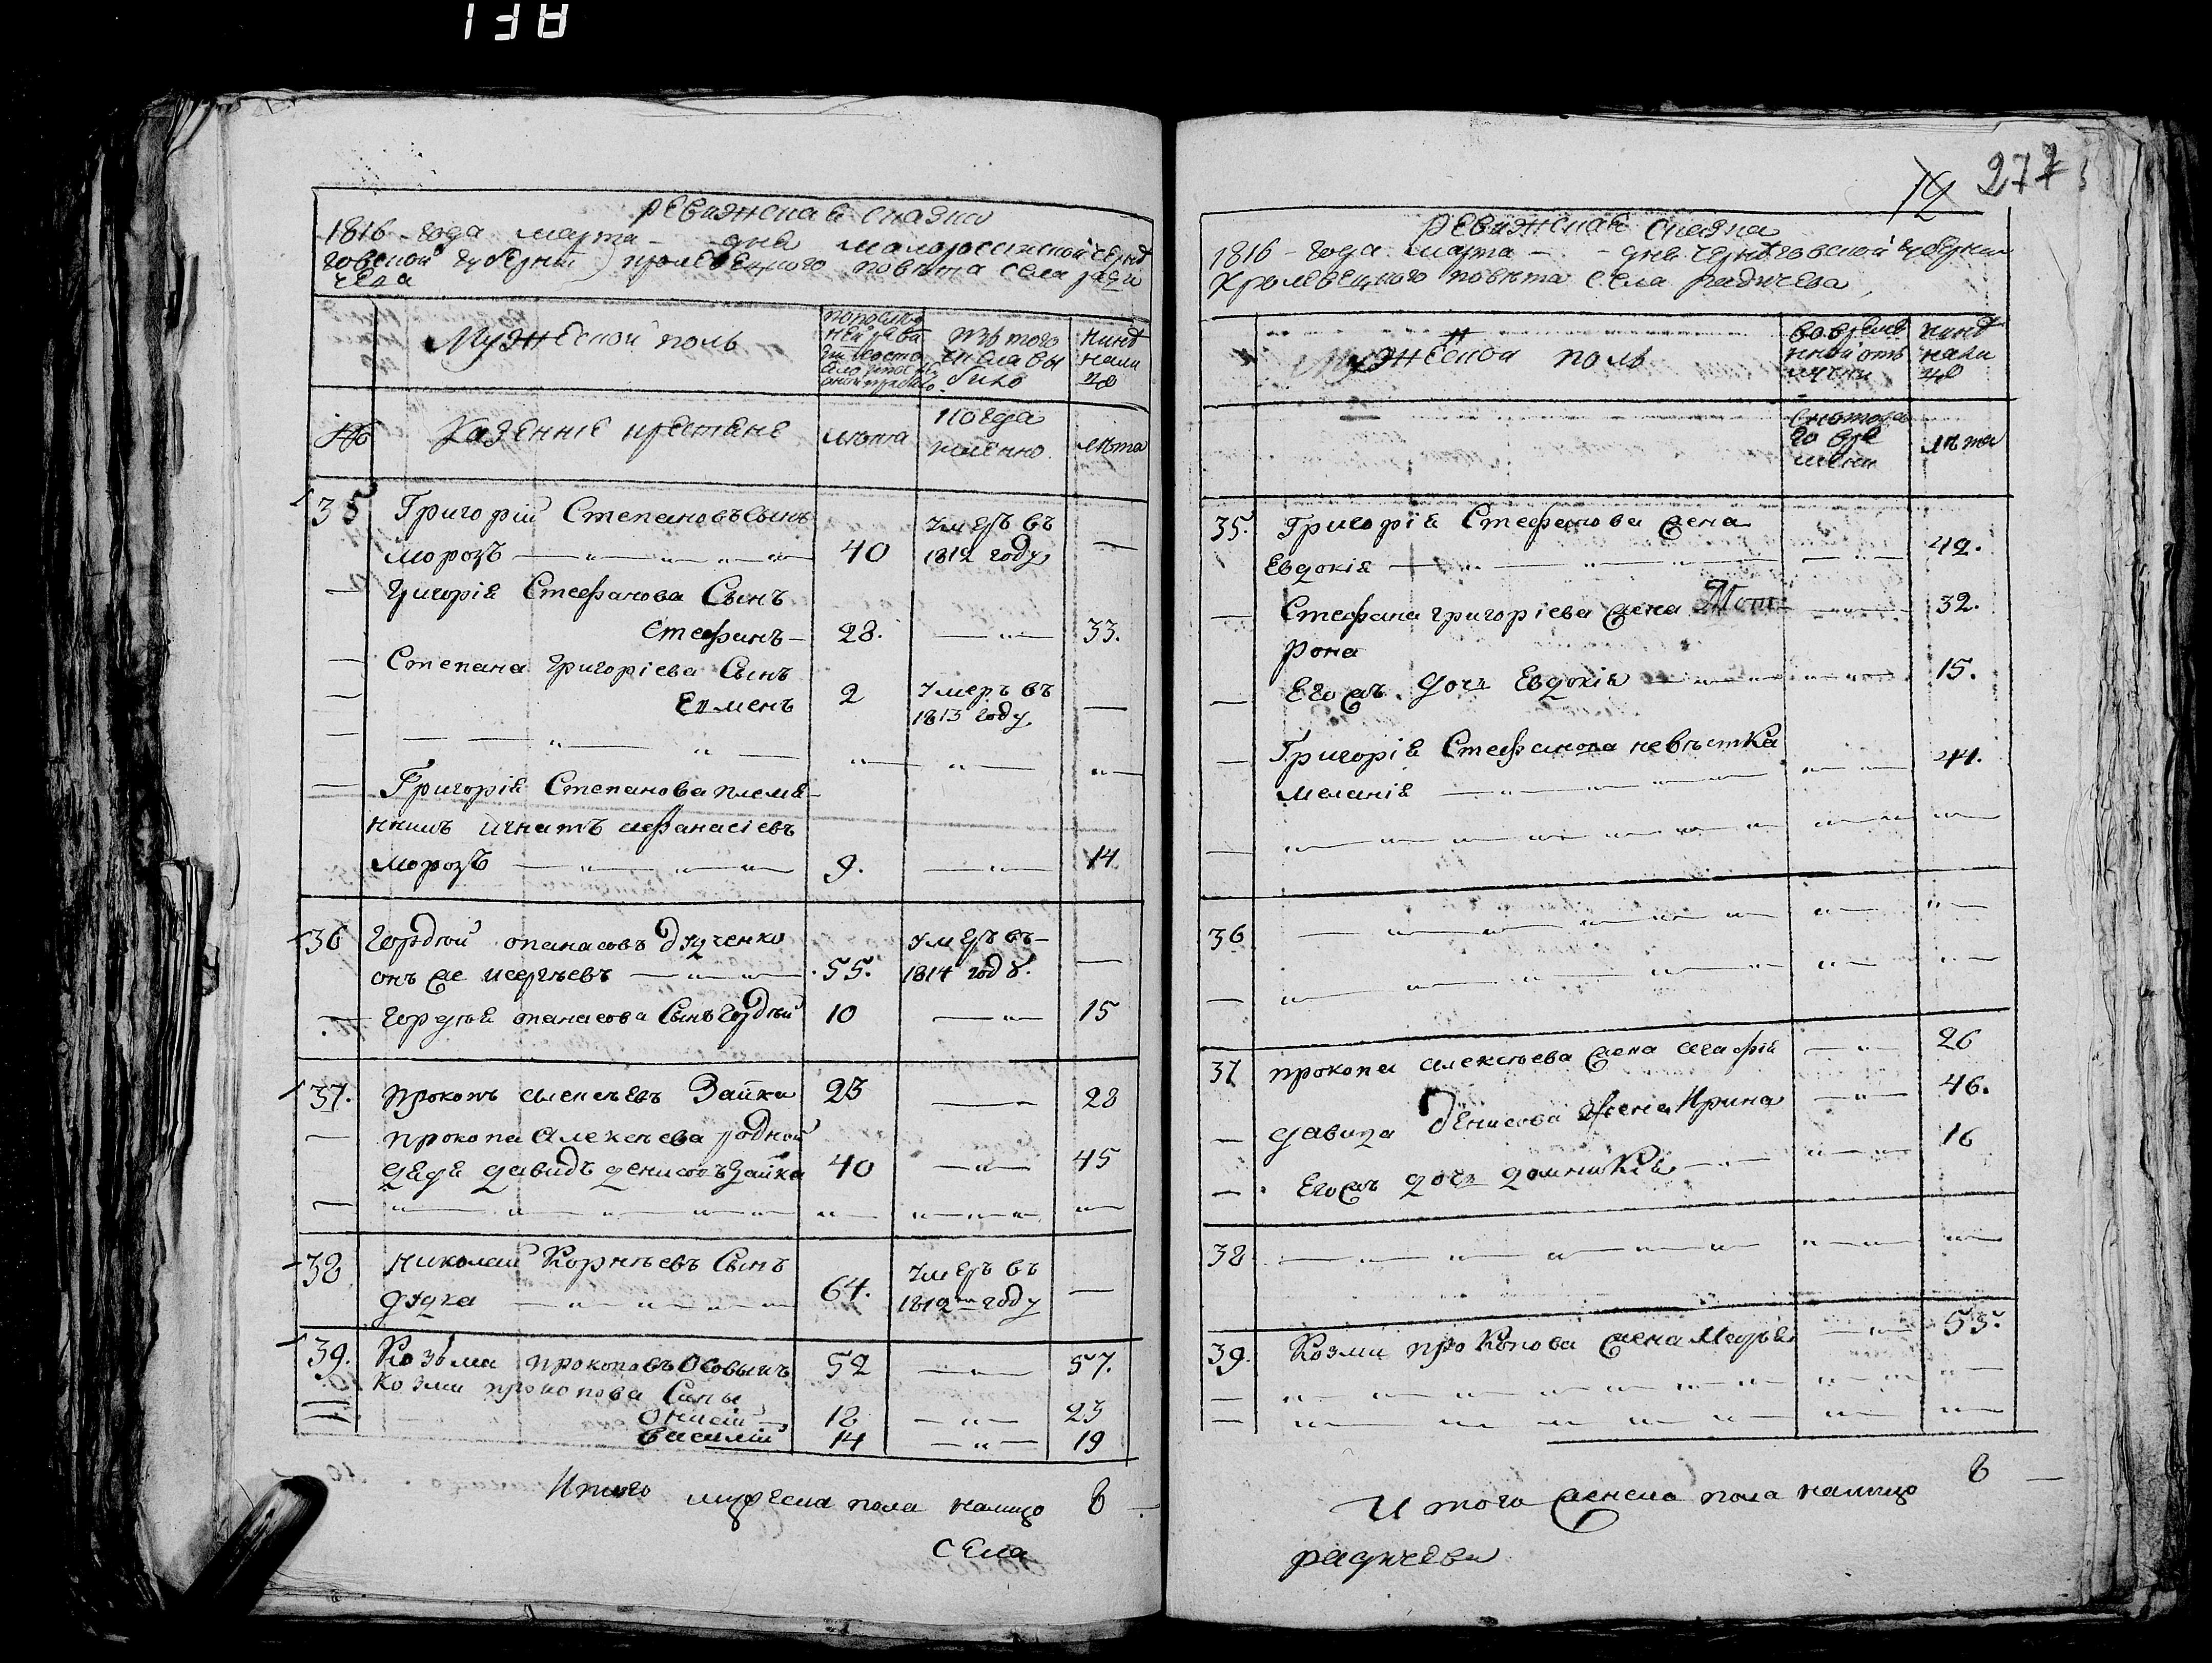 1 3 A
Ревижская сказка
1816 - года марта - дня малоросійской черни
говской губерніи кролевецкого повѣта села ради
чева
Мужеской полъ
По послѣд
ней реви
зіи состо
яло
Изъ того
числа вы
было
Нынѣ
нали
цо
№
Казенніе крестяне
лѣта
Когда
именно
лѣта
35
Григорій Степановъ сынъ
морозъ
40
Умеръ въ
1812 году
—
Григорія Стефанова Сынъ
Стефанъ
28.
33.
Степана Григоріева Сынъ
Семенъ
2
Умеръ въ
1813 году
—
Григорія Степанова племя
нникъ игнатъ афанасіевъ
морозъ
9.
14
36
Гордѣй опанасовъ дудченко
онъ же Сергѣевъ
55.
Умеръ въ
1814 году.
—
Гордѣя опанасова Сынъ Гордѣй
10
15
37.
прокопъ алексѣевъ Зайка
23
28
прокопа Алексѣева родной
дядя давидъ денисовъ Зайка
40
45
38
николай Корнѣевъ Сынъ
дудка
64.
Умеръ въ
1812м году
—
39.
Козьма прокоповъ
52
57.
Козми прокопова Сины
Онисій
18
23
василій
14
19
Итого мужеска пола налицо 8
села
12 277
Ревижская сказка
1816 - года марта - дня черниговской губерніи
Кролевецкого повѣта села радичева
Мужеской полъ
во време
нной отъ
лучки
нинѣ
нали
цо
Скотога
го вре
мени
лѣта
35.
Григорія Стефанова жена
Евдокія
42.
Стефана григоріева жена Мот
рона
32.
Егожъ дочь Евдокія
15.
Григорія Стефанова невѣстка
меланія
44.
36
37
прокопа алексѣева жена агафія
26
давида денисова жена Ирина
46.
Егожъ дочь домникія
16
38
39.
Козми прокопова жена Марья
53.
Итого женска пола налицо 8
радичева